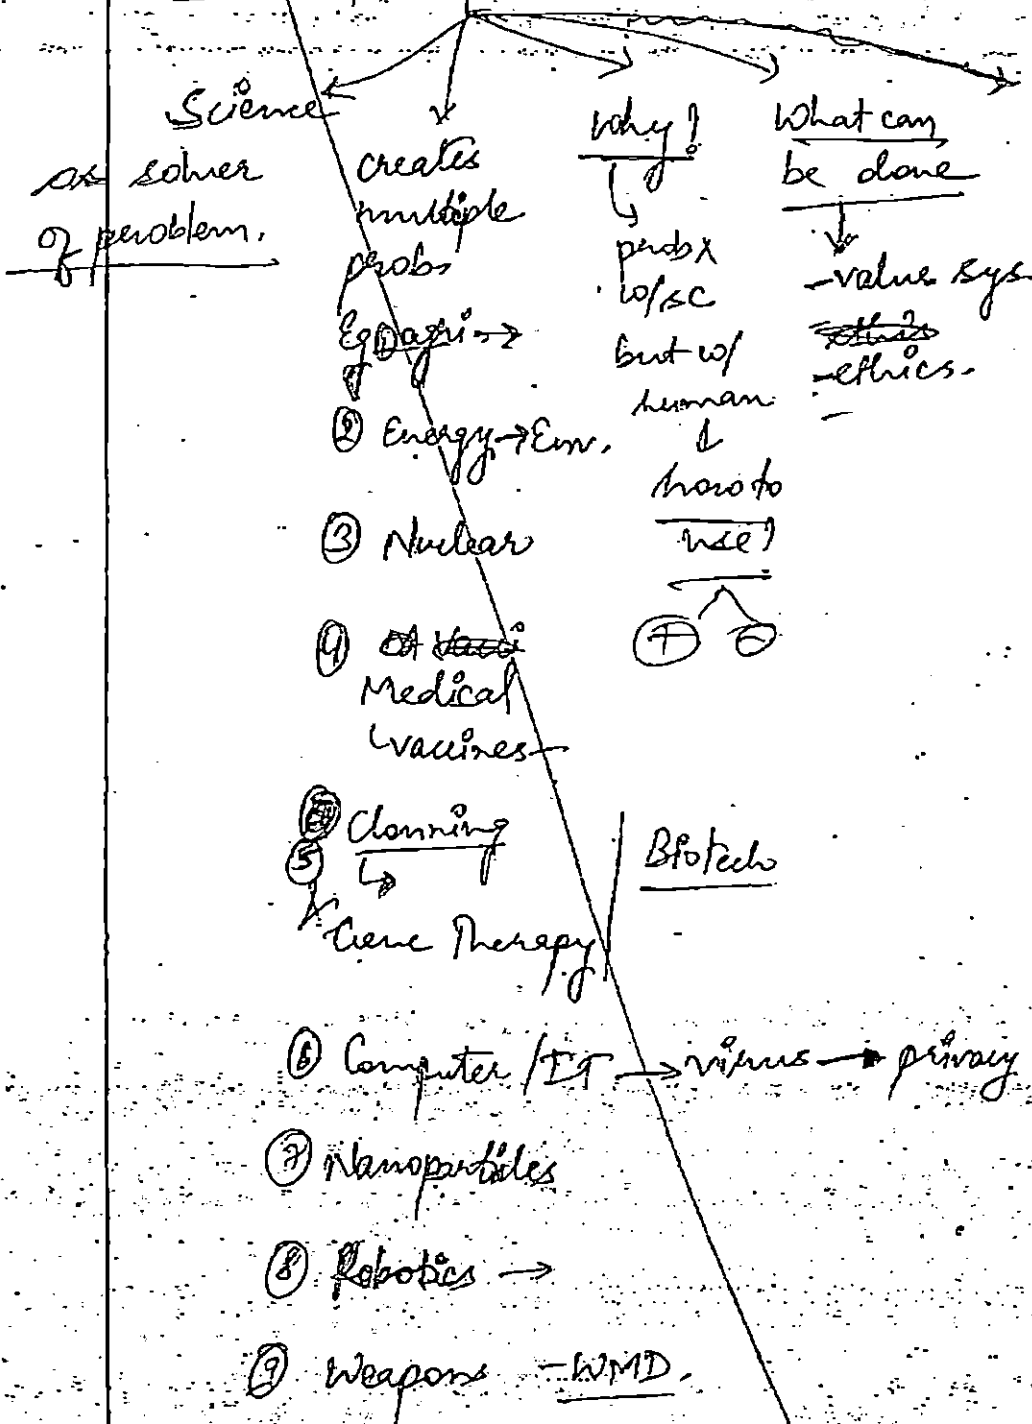 Science
as solver
of problem.
creates
multiple
probs
Eg ① agri →
② Energy → Env.
③ Nuclear
④ Medical
vaccines
⑤ Clonning
Gene Therapy
Biotech
⑥ Computer / IT → virus → privacy
⑦ Nanoparticles
⑧ Robotics →
⑨ Weapons - WMD.
Why?
prob x
w/ sc
but w/
human
how to
use?
+ -
What can
be done
- value sys.
- ethics.
-